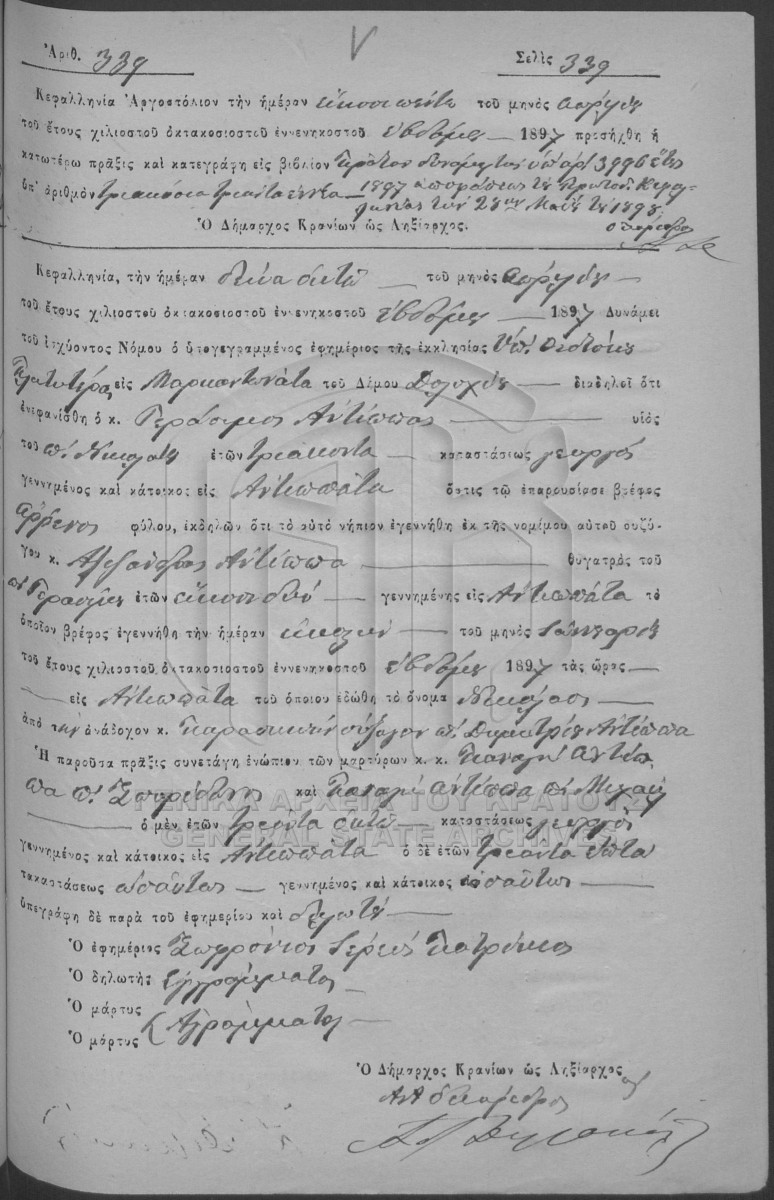 Ἀριθ. 339 Σελὶς 339
Κεφαλληνία Ἀργοστόλιον τὴν ἡμέραν εἰκοσιπέντε τοῦ μηνὸς Ἀπριλίου
τοῦ ἔτους χιλιοστοῦ ὀκτακοσιοστοῦ ἐννενηκοστοῦ ἑβδόμου 1897 προσήχθη ἡ
κατωτέρω πρᾶξις καὶ κατεγράφη εἰς βιβλίον πρῶτον δυνάμει τῆς ὑπ' ἀρ. 3996 ἔτος
ὑπ' ἀριθμὸν τριακόσια τριάντα ἐννέα 1897 ἀποφάσεως τοῦ Πρωτοδ. Κεφαλ-
ληνίας τῶν 28ης Μαΐου τοῦ 1898
Ὁ Δήμαρχος Κρανίων ὡς Ληξίαρχος. ὁ πάρεδρος
Κεφαλληνία, τὴν ἡμέραν δέκα ὀκτὼ τοῦ μηνὸς Ἀπριλίου
τοῦ ἔτους χιλιοστοῦ ὀκτακοσιοστοῦ ἐννενηκοστοῦ ἑβδόμου 1897 Δυνάμει
τοῦ ἰσχύοντος Νόμου ὁ ὑπογεγραμμένος ἐφημέριος τῆς ἐκκλησίας Ὑπ. Θεοτόκου
Πλατυτέρας εἰς Μαρκαντωνάτα τοῦ Δήμου διαδηλοῖ ὅτι
ἐνεφανίσθη ὁ κ. Γεράσιμος Ἀντίππας υἱὸς
τοῦ π. Νικολάου ἐτῶν τριάκοντα καταστάσεως γεωργὸς
γεννημένος καὶ κάτοικος εἰς Ἀντιππάτα ὅστις τῷ ἐπαρουσίασε βρέφος
ἄρρενος φύλου, ἐκδηλῶν ὅτι τὸ αὐτὸ νήπιον ἐγεννήθη ἐκ τῆς νομίμου αὐτοῦ συζύ-
γου κ. Ἀλεξάνδρας Ἀντίππα θυγατρὸς τοῦ
π. Γερασίμου ἐτῶν εἴκοσι δύο γεννημένης εἰς Ἀντιππάτα τὸ
ὁποῖον βρέφος ἐγεννήθη τὴν ἡμέραν τοῦ μηνὸς Ἰανουαρίου
τοῦ ἔτους χιλιοστοῦ ὀκτακοσιοστοῦ ἐννενηκοστοῦ ἑβδόμου 1897 τὰς ὥρας
εἰς Ἀντιππάτα τοῦ ὁποίου ἐδώθη τὸ ὄνομα Νικόλαος
ἀπὸ τὴν ἀνάδοχον κ. Παρασκευὴν σύζυγον π. Δημητρίου Ἀντίππα
Ἡ παροῦσα πρᾶξις συνετάγη ἐνώπιον τῶν μαρτύρων κ. κ. Παναγῆ Ἀντίπ-
πα π. Σπυρίδωνος καὶ Παναγῆ Ἀντίππα π. Μιχαὴλ
ὁ μὲν ἐτῶν τριάντα ὀκτὼ καταστάσεως γεωργὸς
γεννημένος καὶ κάτοικος εἰς Ἀντιππάτα ὁ δὲ ἐτῶν τριάντα ἑπτὰ
καταστάσεως ὡσαύτως γεννημένος καὶ κάτοικος ὡσαύτως
ὑπεγράφη δὲ παρὰ τοῦ ἐφημερίου καὶ δηλωτοῦ
Ὁ ἐφημέριος Σωφρόνιος Ἱερεὺς
Ὁ δηλωτής
Ὁ μάρτυς
Ὁ μάρτυς Ἀγράμματοι
Ὁ Δήμαρχος Κρανίων ὡς Ληξίαρχος
ὁ πάρεδρος
ΓΕΝΙΚΑ ΑΡΧΕΙΑ ΤΟΥ ΚΡΑΤΟΥΣ
GENERAL STATE ARCHIVES